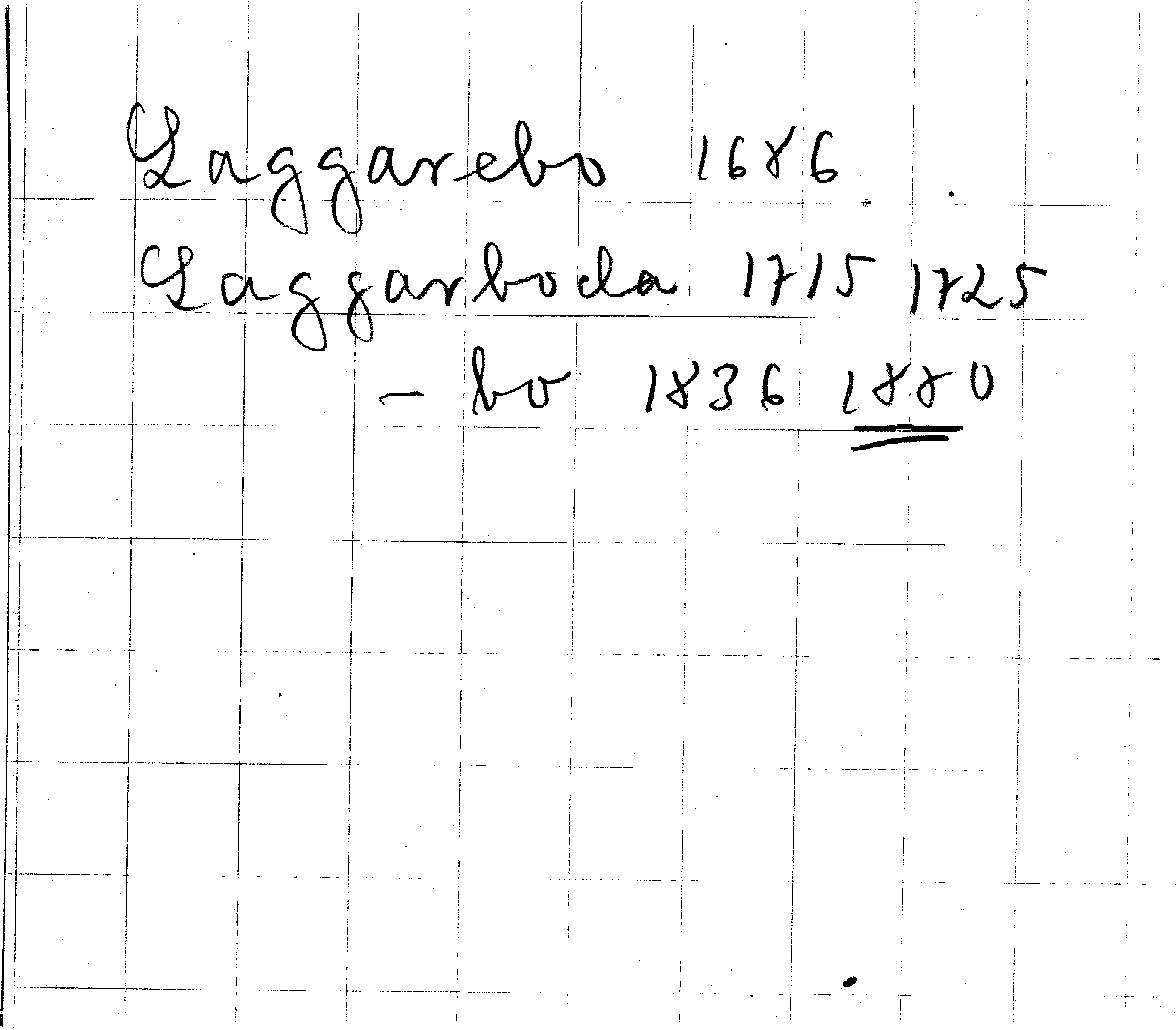 Laggarebo 1686
Laggarboda 1715 1725
- bo 1836 1880